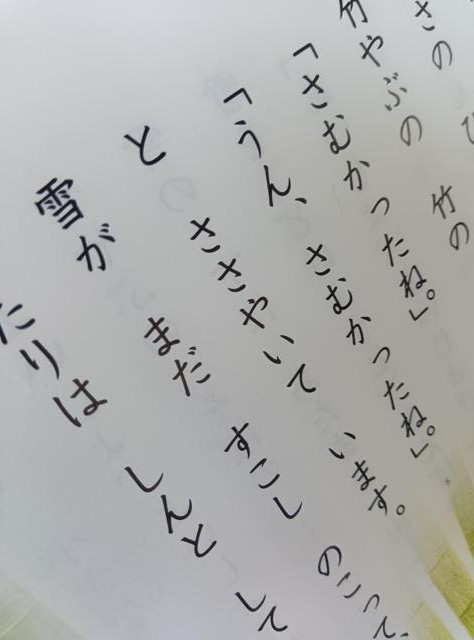 さの ひ
竹やぶの 竹の
「さむかったね。」
「うん、さむかったね。」
と ささやいて います。
雪が まだ すこし のこって、
たりは しんと して